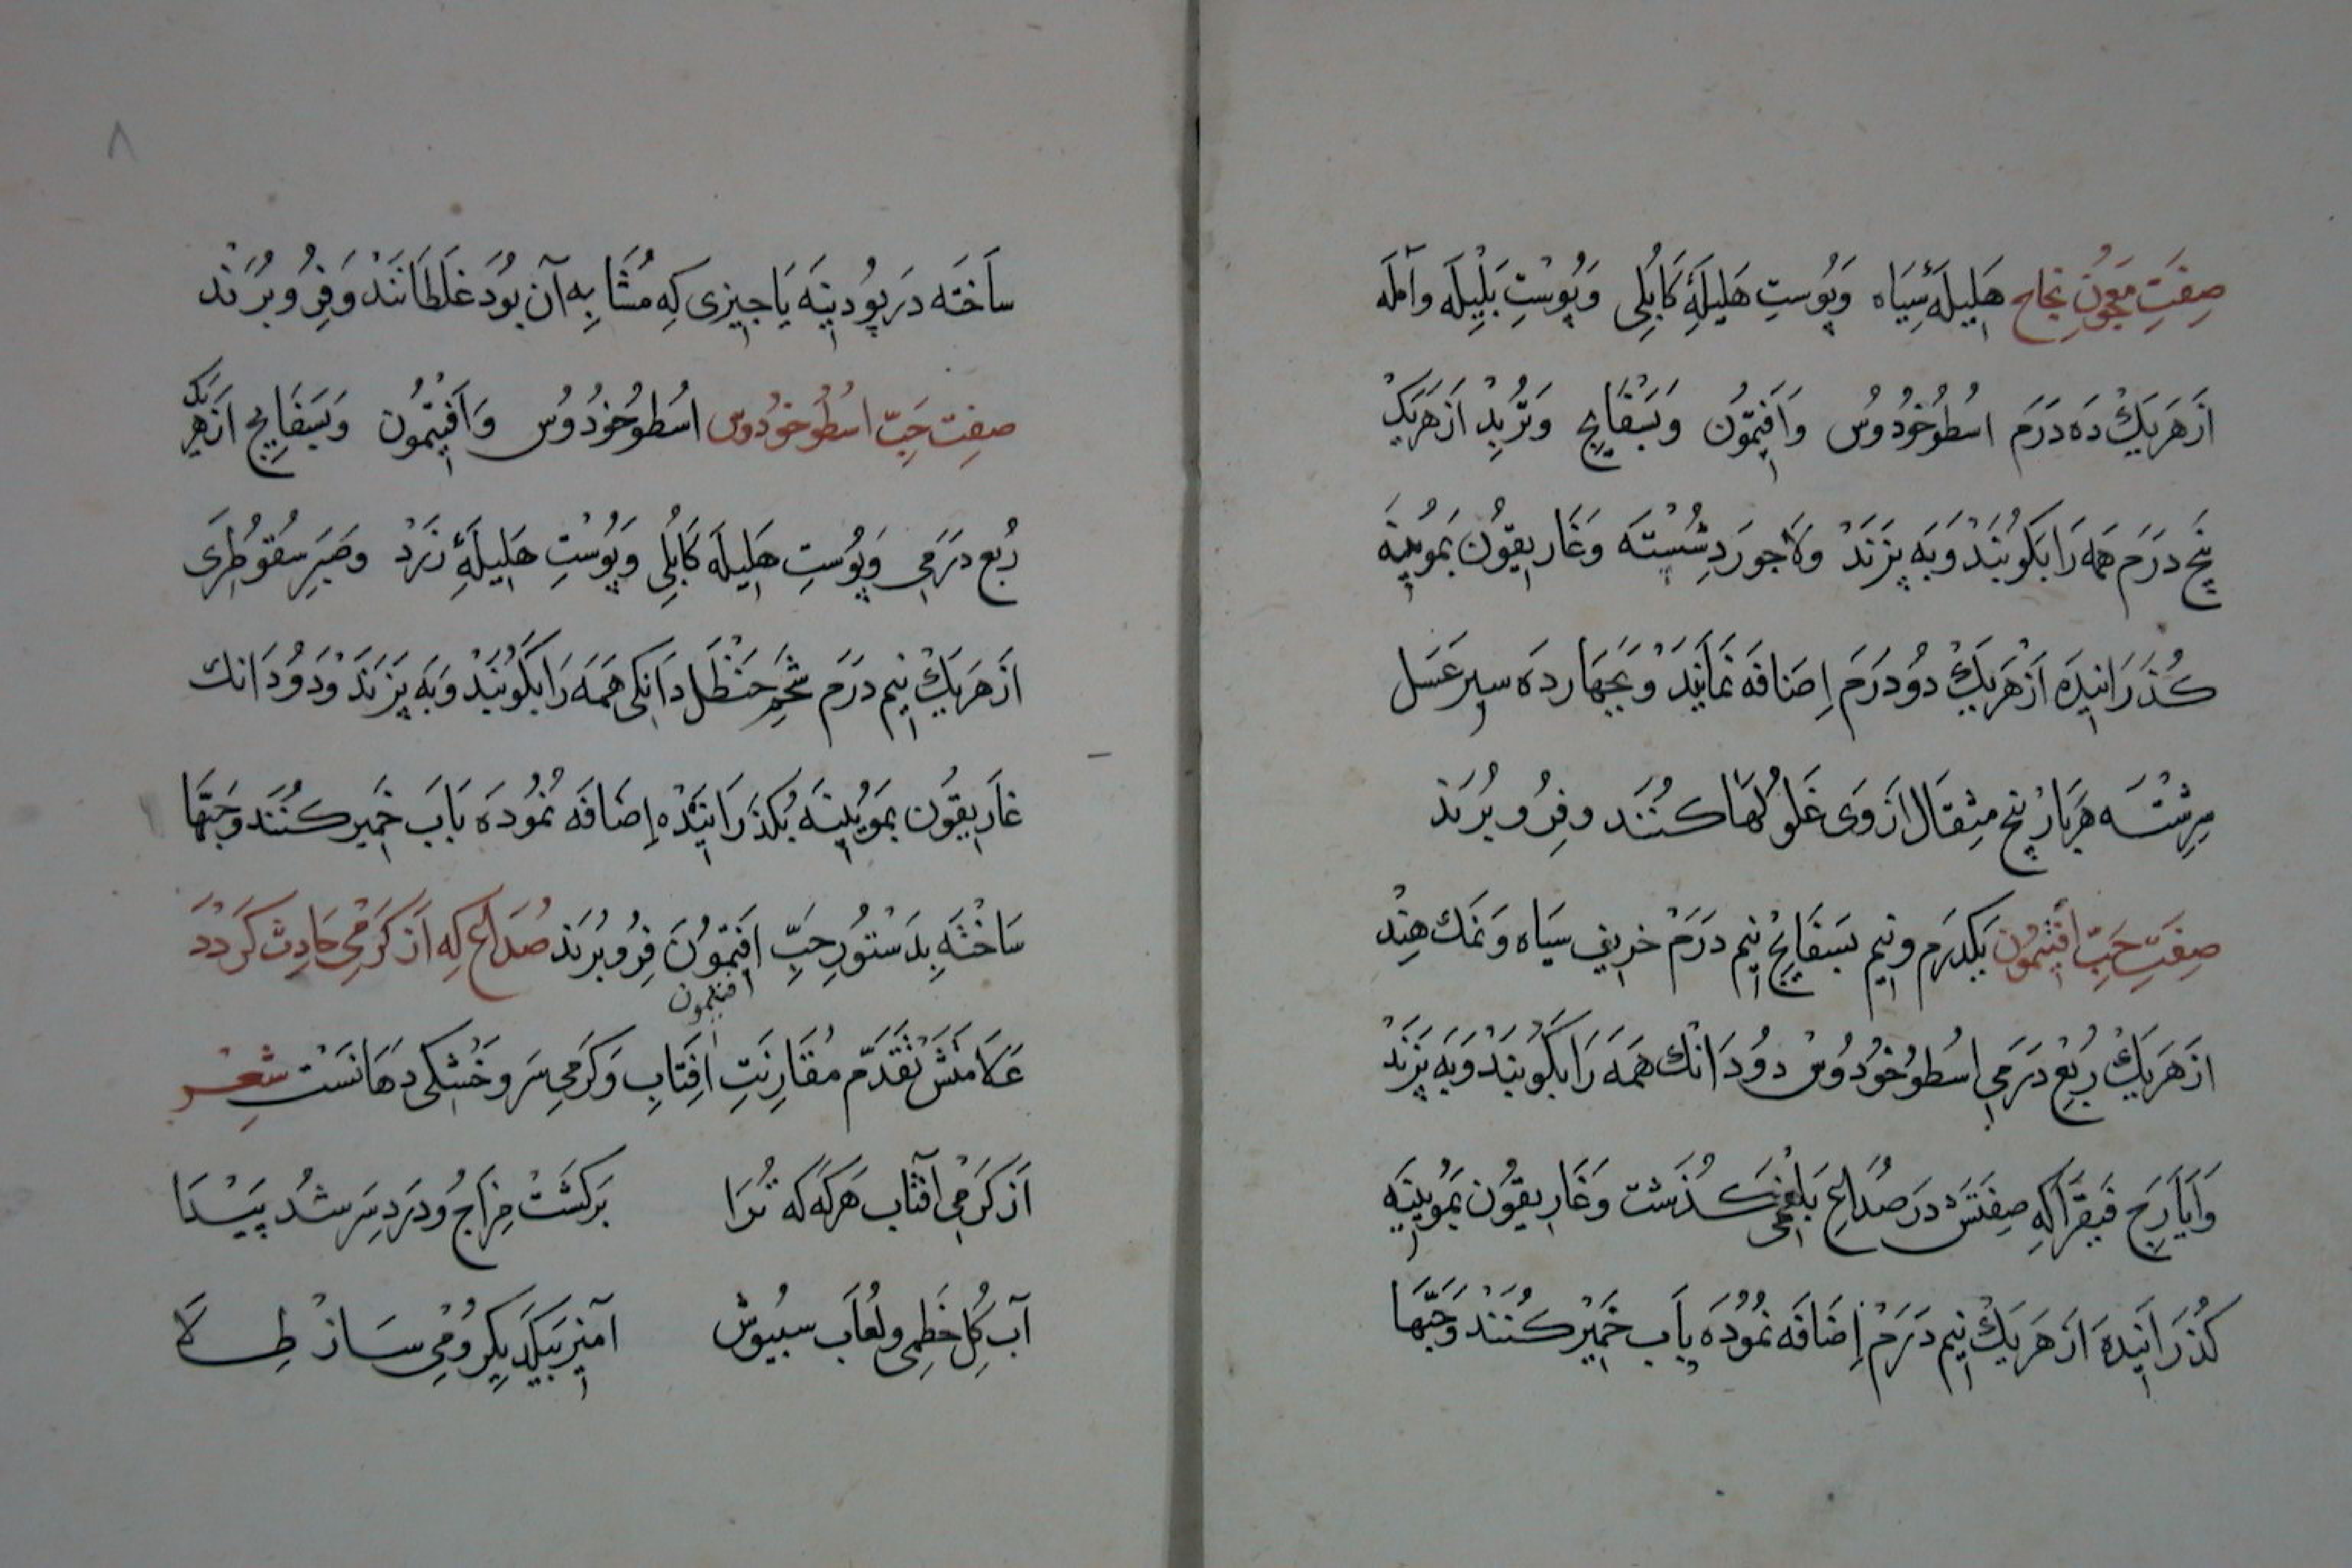 صِفَتِ مَعجُونِ نجاح هَلِیلَهٔ سِیَاه وَپُوستِ هَلِیلَهٔ کَابُلِی وَپُوستِ بَلِیلَه وآمله
اَز هَر یَكْ دَه دَرَم اسُطُوخُودُوسْ وَاَفِتمُون وَبَسْفَایِج وَتُربُدْ اَز هَر یَكْ
پنج دِرَم همه رَا بکُوبَنْد وَبَه پَزَنَدْ وَلاجوَرد شُسْتَه وَغَارِیقُون بَمُویِینَه
کُذَرَانِیدَه اَزْ هَر یَكْ دُو دِرَم اِضافَه نمایَنْد وَبچهَار دَه سیر عَسَل
سِرِشْتَه هَر بَار پنج مِثقَال اَز وَی غَلُولهَا کُنَند وفِرُو بُرَند
صِفَتِ حَبِّ اَفِتِمُون یکدِرَم ونیم بسفَایِج نیم دِرَمْ خربقِ سِیَاه وَنَمَك هِنِد
اَز هَر یَكْ رُبْعِ دَرَمی اسُطُوخُودُوسْ دُو دَانْك هَمَه رَا بکُوبَنْد وَبَه پَزَنْد
وَاَیَارِجِ فَیقَرَا که صِفَتَشْ دَر صُدَاعِ بَلغَمِی کُذَشت وَغَارِیقُون بَمُویِینَه
کُذَرَانِیدَه اَز هَر یَكْ نیم دِرَمْ اِضَافَه نمُودَه بآب خمِیْر کُنَنْد وَحَبّهَا
سَاختَه دَر پُودِینَه یَا چیزی کِه مُشَابِهِ آن بُوَد غَلطَانَنَدْ وَفِرُو بُرَنْد
صِفَت حَبِّ اسُطُوخُودُوس اسُطُوخُودُوس وَاَفِتِمُون وَبَسَفَایِج اَز هَر یَك
رُبع دَرَمی وَپُوستِ هَلِیلَه کَابُلِی وَپُوسْتِ هَلِیلَهٔ زَرْد وصَبِرِ سُقُوطُرِی
اَز هَر یَكْ نیم دَرَم شَحْمِ حَنْظَل دَانکی هَمَه رَا بکُوبَنْد وَبَه پَزَنَدْ وَدُو دَانك
غَارِیقُون بمُویِینَه بُکذَرَانِیدَه اِضَافَه نمُودَه بَاب خَمِیر کُنَنَد وحَبّهَا
سَاخْتَه بِدَسْتُورِ حَبِّ اَفِتِمُون فِرُو بُرَند صُدَاع که اَز کَرَمْی حَادِث کَردَدْ
افتیمون
عَلَامَتَشْ تَقَدّم مُقَارِنَتِ اَفِتَاب وَکَرمیِ سَر وخُشْکی دَهَانَسْت شِعْر
اَز کَرْمِی آفْتَاب هَر کَه که تُرَا بَرکَشَتْ مِزَاجُ وَدَردِ سَر شُد پَیْدَا
آب کُلِ خَطِمی ولُعَاب سبُیُوشْ آمیز بیَکَدیِکِر ومی سَازْ طِلا